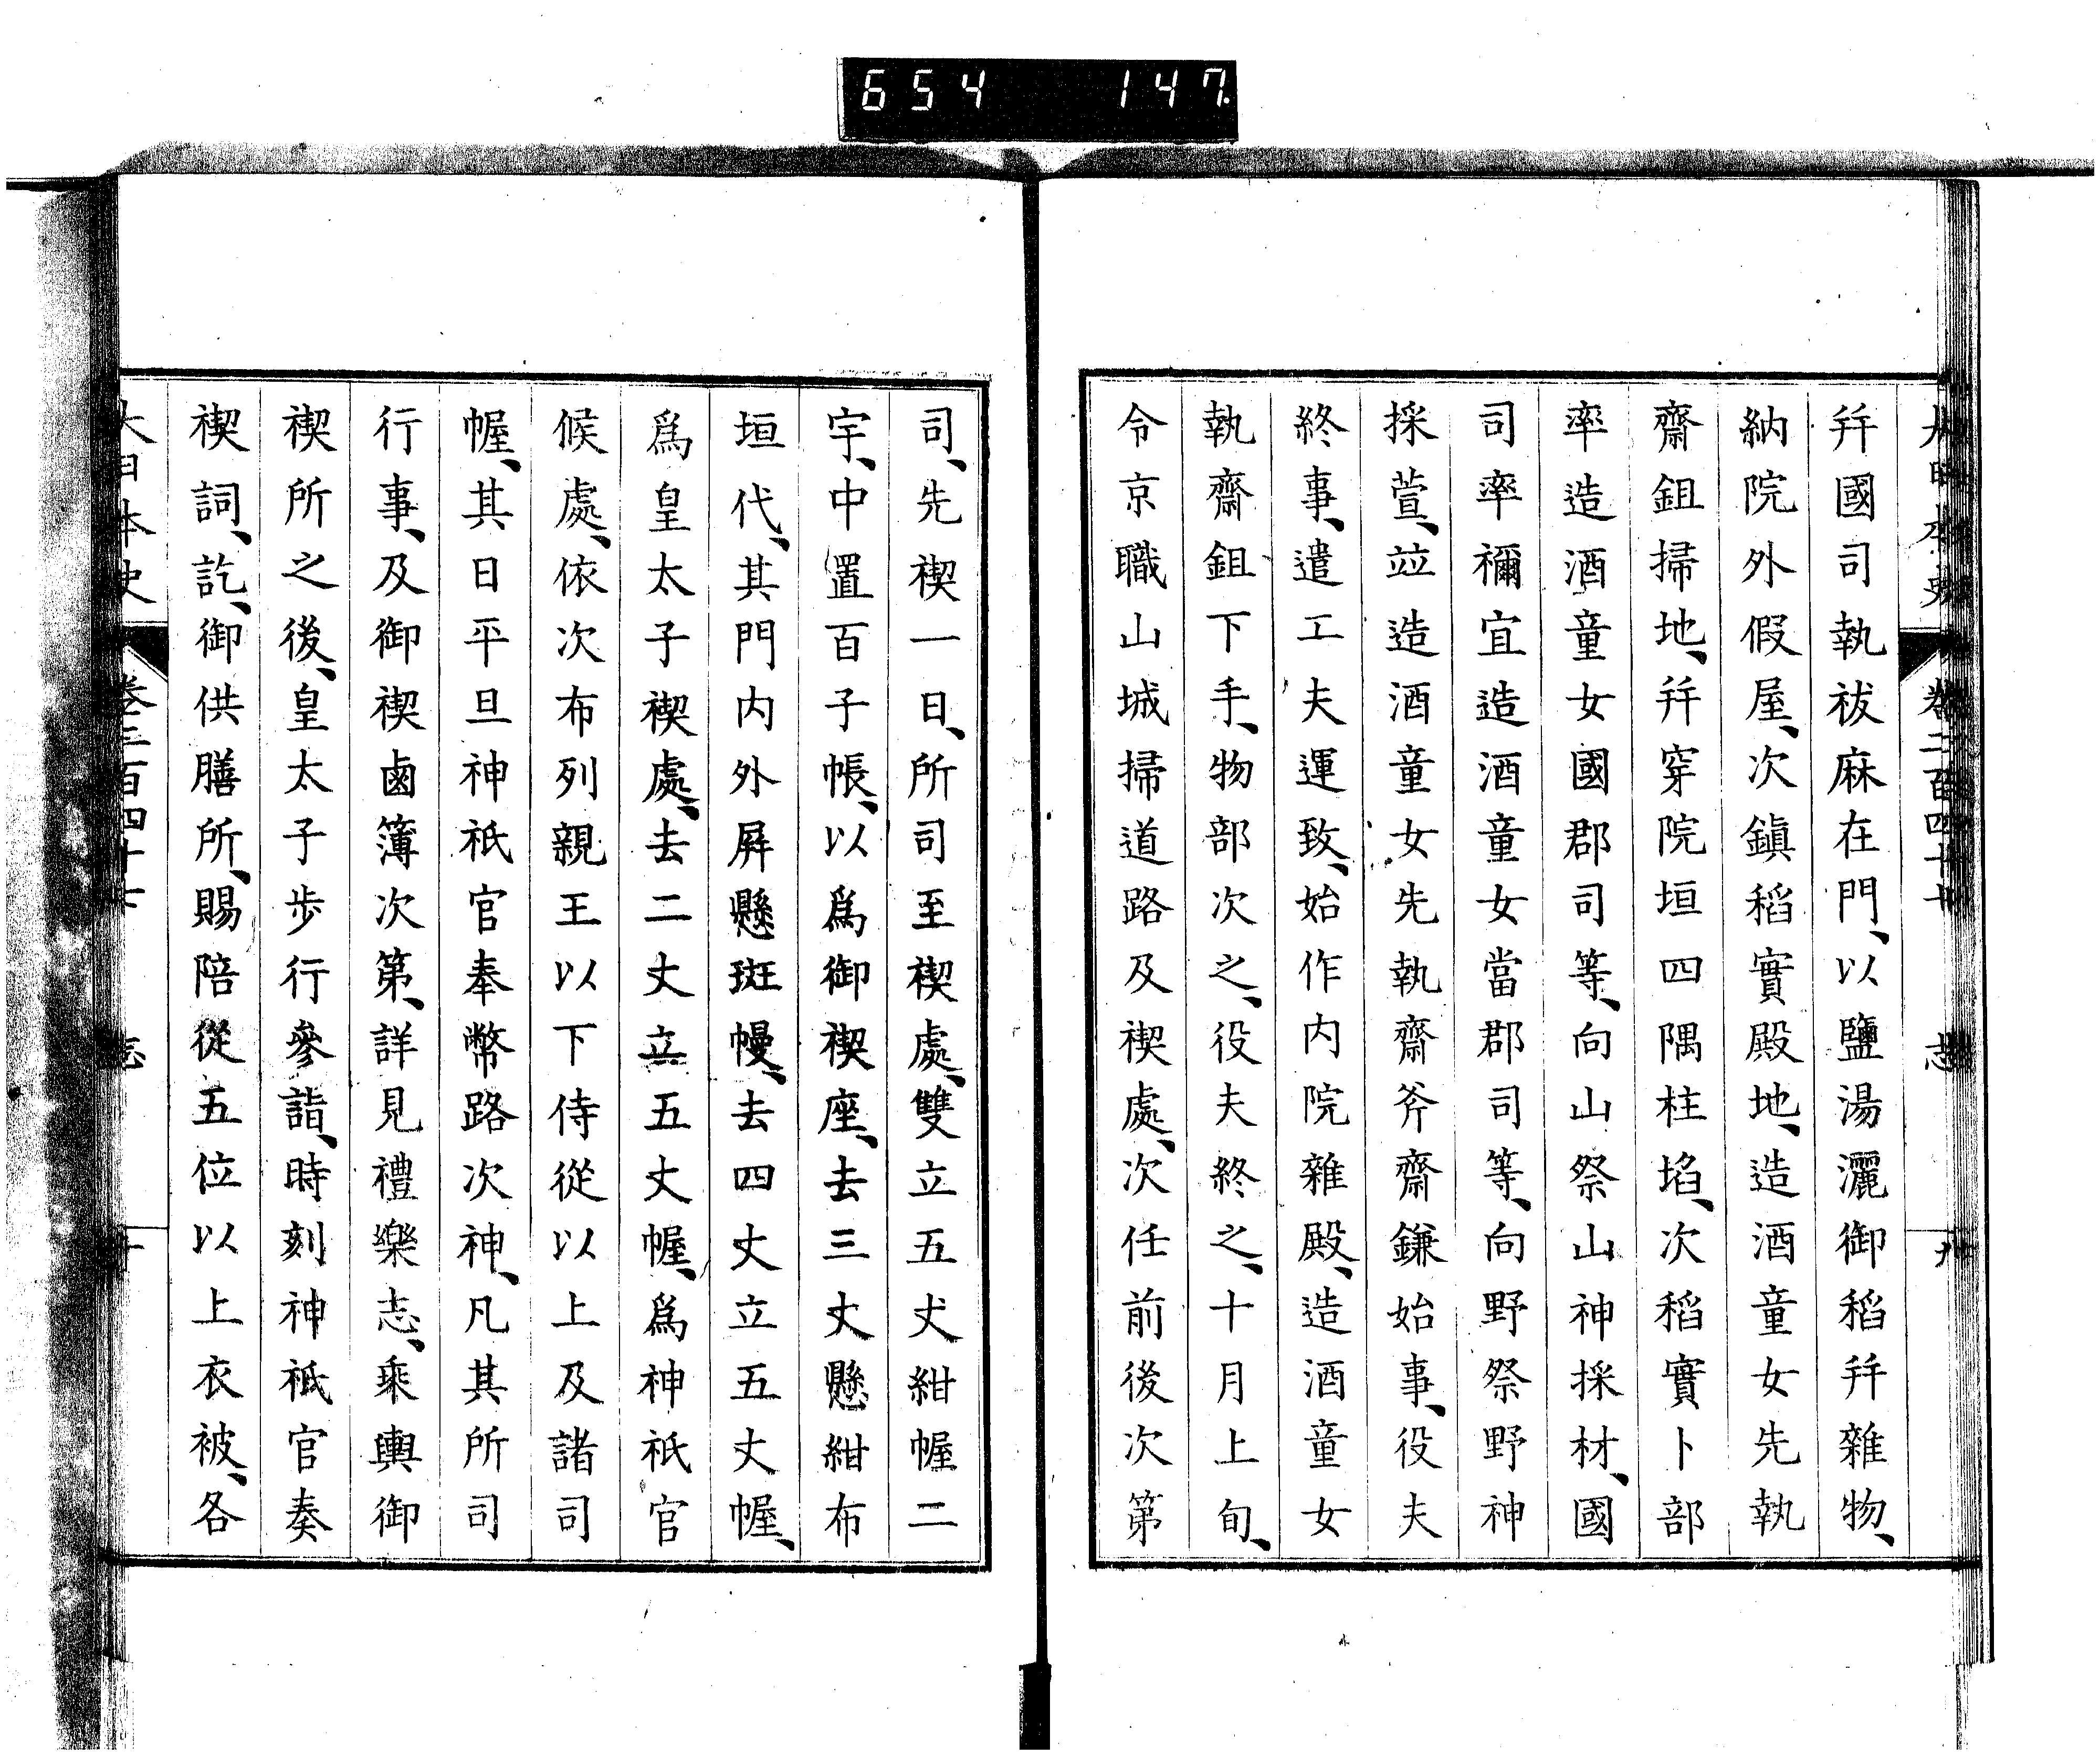 654 147.
大日本史 卷二百四十七 志 九
幷國司執祓麻在門、以鹽湯灑御稻幷雜物、
納院外假屋、次鎭稻實殿地、造酒童女先執
齋鉏掃地、幷穿院垣四隅柱埳、次稻實卜部
率造酒童女國郡司等、向山祭山神採材、國
司率禰宜造酒童女當郡司等、向野祭野神
採萱、竝造酒童女先執齋斧齋鎌始事、役夫
終事、遣工夫運致、始作內院雜殿、造酒童女
執齋鉏下手、物部次之、役夫終之、十月上旬、
令京職山城掃道路及禊處、次任前後次第
司、先禊一日、所司至禊處、雙立五丈紺幄二
宇、中置百子帳、以爲御禊座、去三丈懸紺布
垣代、其門內外屛懸斑幔、去四丈立五丈幄、
爲皇太子禊處、去二丈立五丈幄、爲神祇官
候處、依次布列親王以下侍從以上及諸司
幄、其日平旦神祇官奉幣路次神、凡其所司
行事、及御禊鹵簿次第、詳見禮樂志、乘輿御
禊所之後、皇太子步行參詣、時刻神祗官奏
禊詞、訖、御供膳所、賜陪從五位以上衣被、各
大日本史 卷二百四十七 志 十